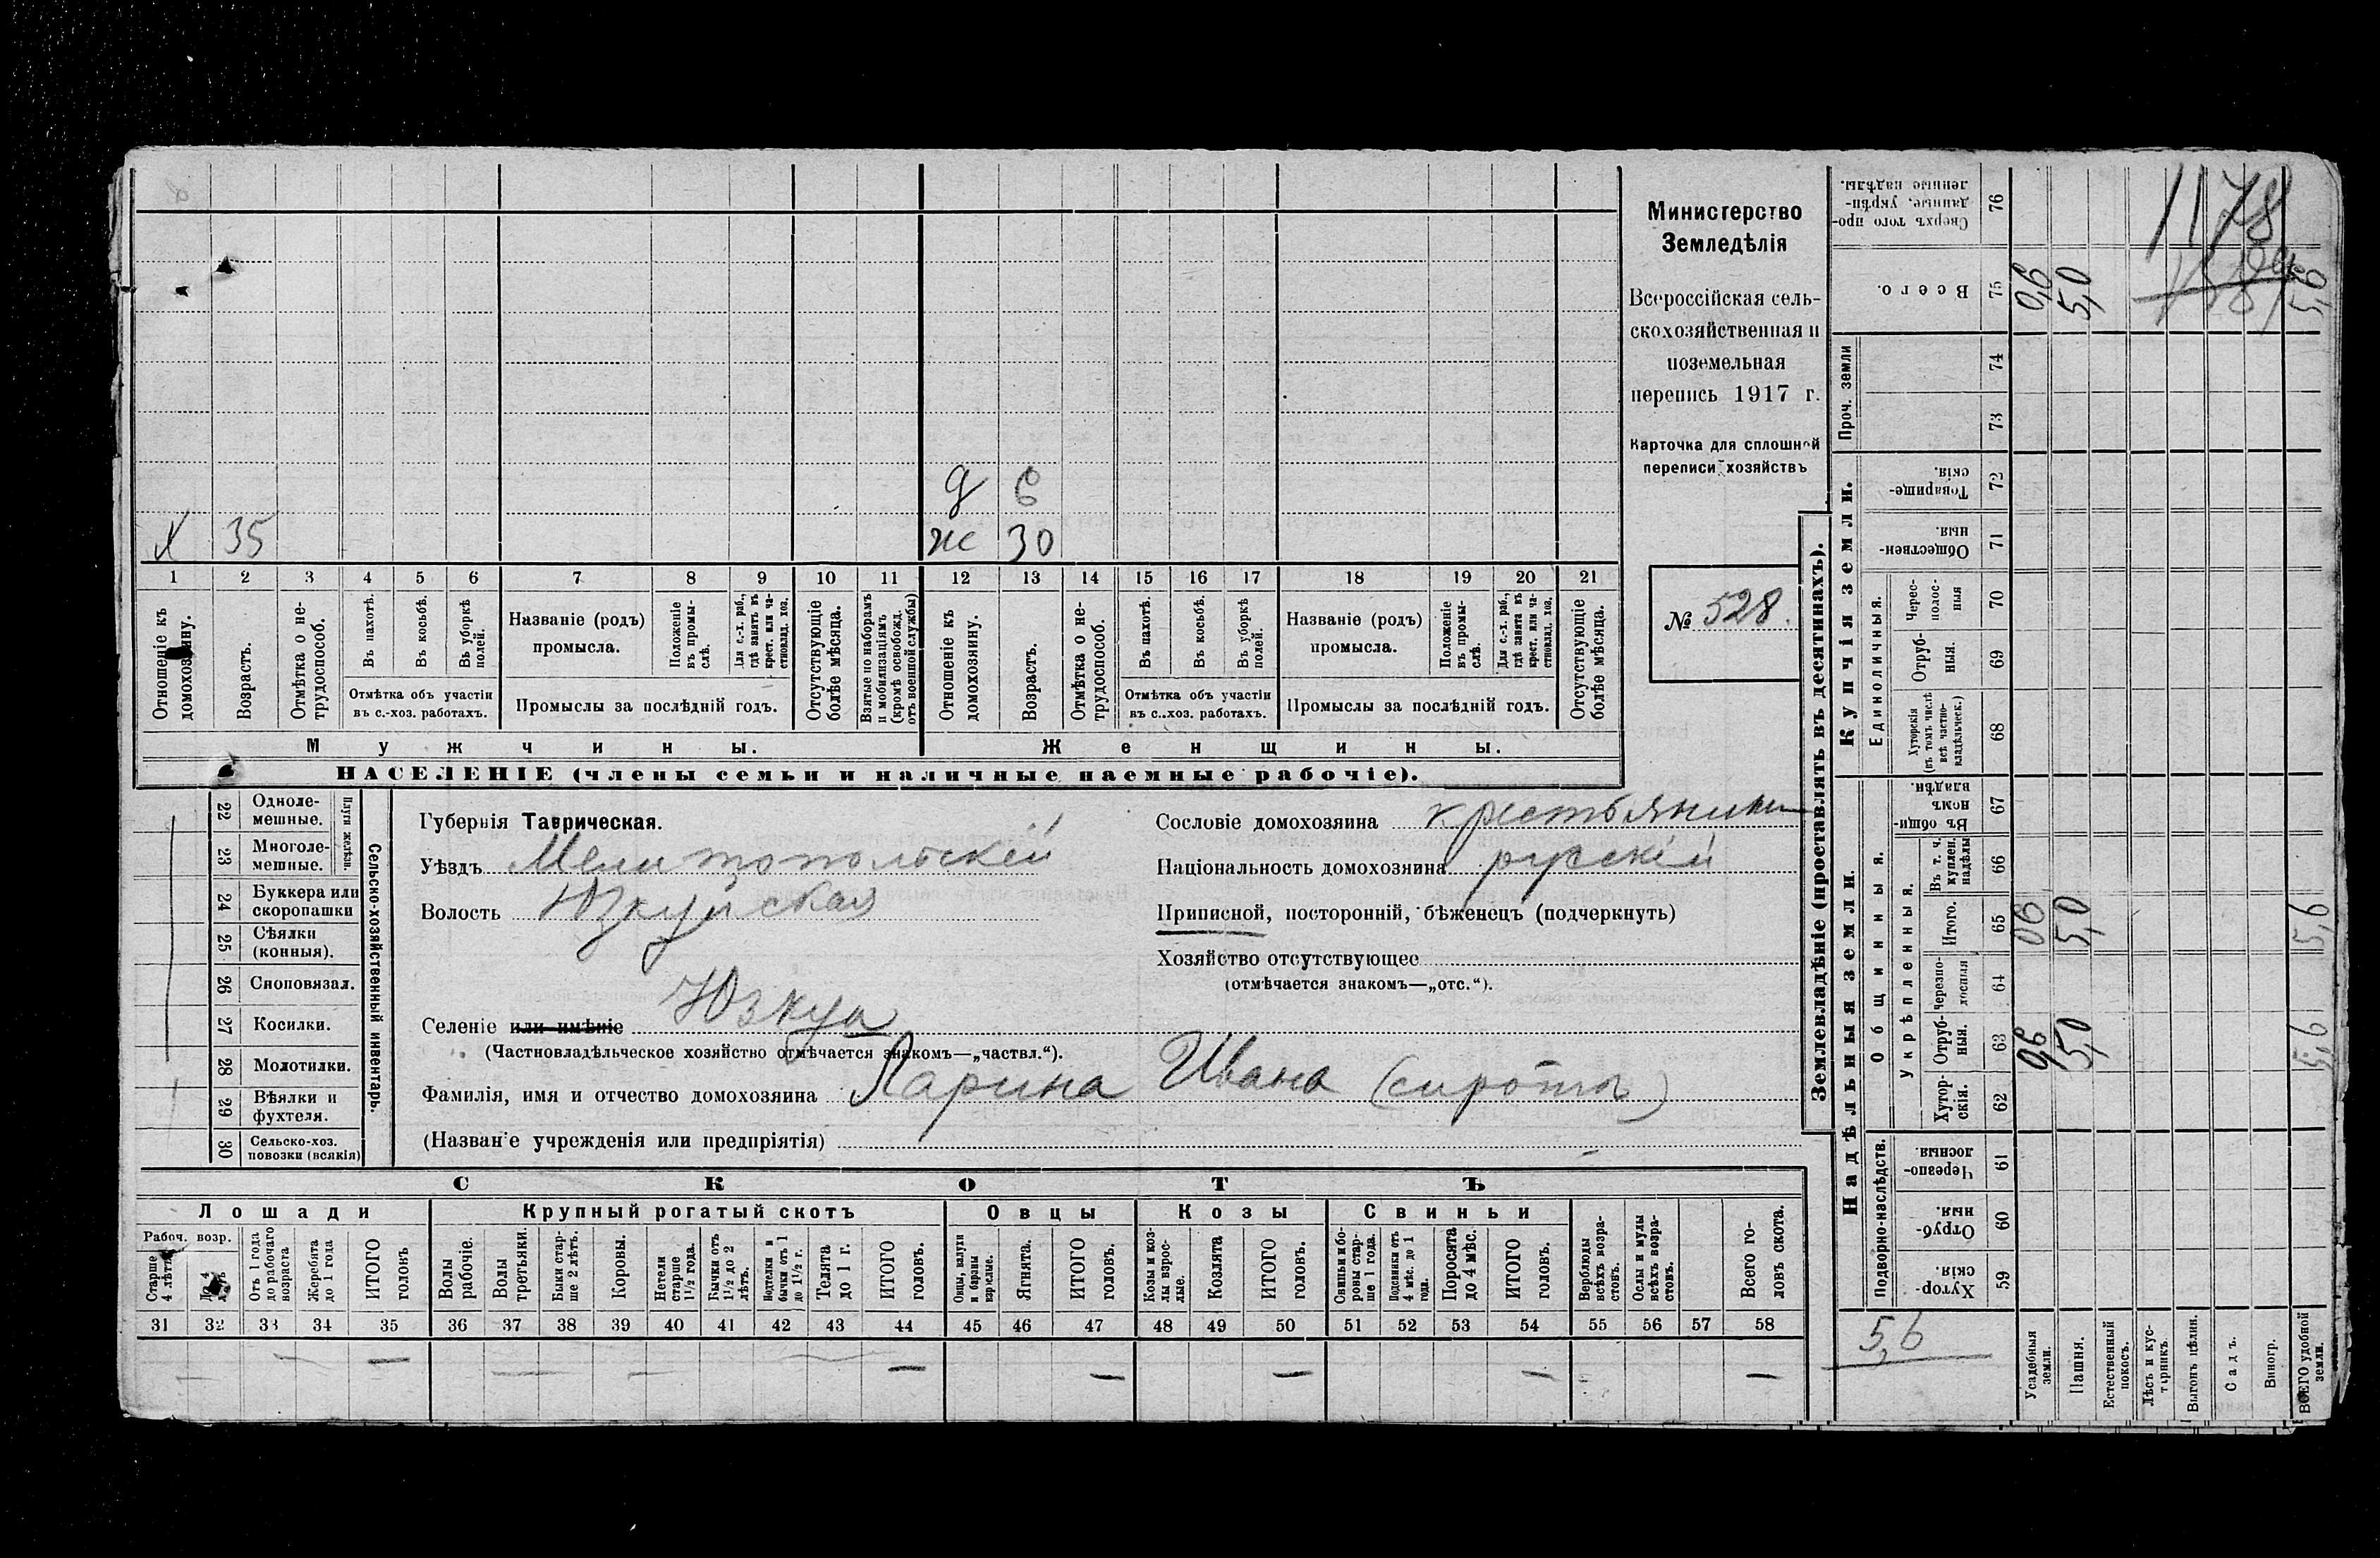 Министерство
Земледѣлія
Всероссійская сель-
скохозяйственная и
поземельная
перепись 1917 г.
Карточка для сплошной
переписи хозяйствъ
№ 528.
д 6
х 35
ж 30
1 2 3 4 5 6 7 8 9 10 11 12 13 14 15 16 17 18 19 20 21
Отношеніе къ домохозяину.
Возрастъ.
Отмѣтка о не-трудоспособ.
Въ пахотѣ.
Въ косьбѣ.
Въ уборкѣ полей.
Отмѣтка объ участіи
въ с.-хоз. работахъ.
Названіе (родъ)
промысла.
Положеніе въ промы-слѣ.
Для с.-х. раб., гдѣ занятъ въ крест. или ча-стновлад. хоз.
Промыслы за послѣдній годъ.
Отсутствующіе болѣе мѣсяца.
Взятые по наборамъ и мобилизаціямъ (кромѣ освобожд. отъ военной службы)
Отношеніе къ домохозяину.
Возрастъ.
Отмѣтка о не-трудоспособ.
Въ пахотѣ.
Въ косьбѣ.
Въ уборкѣ полей.
Отмѣтка объ участіи
въ с.-хоз. работахъ.
Названіе (родъ)
промысла.
Положеніе въ промы-слѣ.
Для с.-х. раб., гдѣ занята въ крест. или ча-стновлад. хоз.
Промыслы за послѣдній годъ.
Отсутствующіе болѣе мѣсяца.
Мужчины. Женщины.
НАСЕЛЕНІЕ (члены семьи и наличные наемные рабочіе).
22 Одноле-мешные.
23 Многоле-мешные.
Плуги желѣзн.
24 Буккера или скоропашки
25 Сѣялки (конныя).
26 Сноповязал.
27 Косилки.
28 Молотилки.
29 Вѣялки и фухтеля.
30 Сельско-хоз. повозки (всякія)
Сельско-хозяйственный инвентарь.
Губернія Таврическая.
Уѣздъ Мелитопольскій
Волость Юзкуйская
Селеніе или имѣніе Юзкуи
(Частновладѣльческое хозяйство отмѣчается знакомъ—„частвл.“).
Фамилія, имя и отчество домохозяина Ларина Ивана (сироты)
(Названіе учрежденія или предпріятія)
Сословіе домохозяина крестьянинъ
Національность домохозяина русскій
Приписной, посторонній, бѣженецъ (подчеркнуть)
Хозяйство отсутствующее
(отмѣчается знакомъ—„отс.“).
СКОТЪ
Лошади Крупный рогатый скотъ Овцы Козы Свиньи
Рабоч. возр.
Старше 4 лѣтъ
Отъ 1 года до рабочаго возраста
Жеребята до 1 года
ИТОГО головъ
Волы рабочіе.
Волы третьяки.
Быки стар-ше 2 лѣтъ.
Коровы.
Нетели старше 1½ года.
Бычки отъ 1½ до 2 лѣтъ.
Подтелки и бычки отъ 1 до 1½ г.
Телята до 1 г.
ИТОГО головъ.
Овцы, валухи и бараны взрослые.
Ягнята.
ИТОГО головъ.
Козы и коз-лы взрос-лые.
Козлята
ИТОГО головъ.
Свиньи и бо-ровы стар-ше 1 года.
Подсвинки отъ 4 мѣс. до 1 года.
Поросята до 4 мѣс.
ИТОГО головъ.
Верблюды всѣхъ возра-стовъ.
Ослы и мулы всѣхъ возра-стовъ.
Всего го-ловъ скота.
31 32 33 34 35 36 37 38 39 40 41 42 43 44 45 46 47 48 49 50 51 52 53 54 55 56 57 58
Землевладѣніе (проставлять въ десятинахъ).
Надѣльныя земли. Купчія земли. Проч. земли
Подворно-наслѣдств.
Общинныя.
Укрѣпленныя.
Единоличныя.
Хутор-скія. 59
Отруб-ныя. 60
Черезпо-лосныя. 61
Хутор-скія. 62
Отруб-ныя. 63
Черезпо-лосныя 64
Итого. 65
Въ т. ч. куплен. надѣлы 66
Въ общин-номъ владѣн. 67
Хуторскія (въ томъ числѣ всѣ частно-владѣльческ.) 68
Отруб-ныя. 69
Черес-полос-ныя 70
Обществен-ныя. 71
Товарище-скія. 72
73
74
Всего. 75
Сверхъ того про-данные, укрѣп-ленные надѣлы. 76
5,6
Усадебныя земли. 0,6 0,6 0,6
Пашня. 5,0 5,0 5,0
Естественный покосъ.
Лѣсъ и кус-тарникъ.
Выгонъ цѣлин.
Садъ.
Виногр.
ВСЕГО удобной земли. 5,6 5,6 5,6
1178